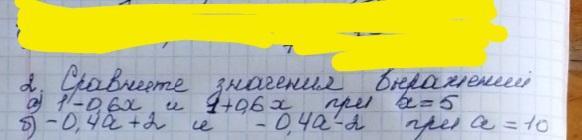 2. Сравните значения выражений
а) 1-0,6x и 1+0,6x при x=5
б) -0,4a+2 и -0,4a-2 при a=10